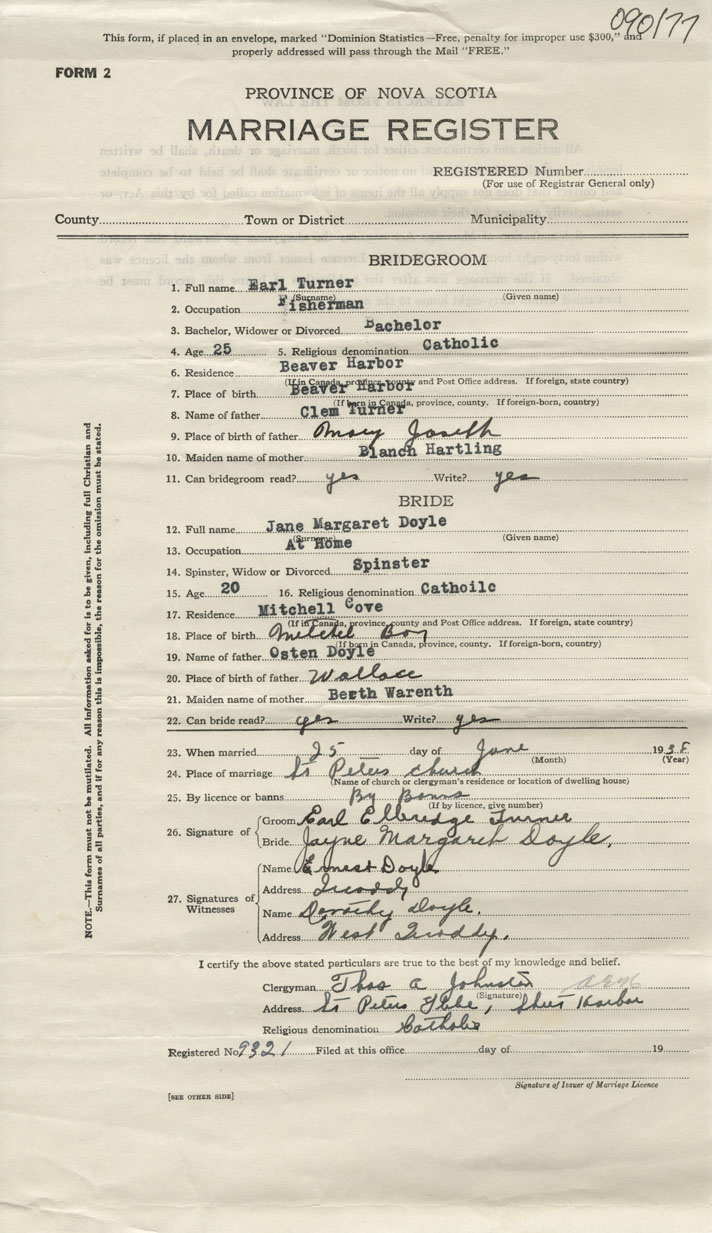 090/77
This form, if placed in an envelope, marked "Dominion Statistics—Free, penalty for improper use $300," and
properly addressed will pass through the Mail "FREE."
FORM 2
PROVINCE OF NOVA SCOTIA
MARRIAGE REGISTER
REGISTERED Number
(For use of Registrar General only)
County Town or District Municipality
BRIDEGROOM
1. Full name Earl Turner
(Surname) (Given name)
2. Occupation Fisherman
3. Bachelor, Widower or Divorced Bachelor
4. Age 25 5. Religious denomination Catholic
6. Residence Beaver Harbor
(If in Canada, province, county and Post Office address. If foreign, state country)
7. Place of birth Beaver Harbor
(If born in Canada, province, county. If foreign-born, country)
8. Name of father Clem Turner
9. Place of birth of father Mary Joseth
10. Maiden name of mother Blanch Hartling
11. Can bridegroom read? yes Write? yes
BRIDE
12. Full name Jane Margaret Doyle
(Surname) (Given name)
13. Occupation At Home
14. Spinster, Widow or Divorced Spinster
15. Age 20 16. Religious denomination Cathoilc
17. Residence Mitchell Cove
(If in Canada, province, county and Post Office address. If foreign, state country)
18. Place of birth Mitchel Bay
(If born in Canada, province, county. If foreign-born, country)
19. Name of father Osten Doyle
20. Place of birth of father Wallace
21. Maiden name of mother Berth Warenth
22. Can bride read? yes Write? yes
23. When married 25 day of June 1938
(Month) (Year)
24. Place of marriage St Peters church
(Name of church or clergyman's residence or location of dwelling house)
25. By licence or banns By Banns
(If by licence, give number)
26. Signature of
Groom Earl Elberidge Turner
Bride Jayne Margaret Doyle.
27. Signatures of Witnesses
Name Ernest Doyle
Address
Name Dorothy Doyle.
Address West Quoddy.
I certify the above stated particulars are true to the best of my knowledge and belief.
Clergyman Thos a Johnston
(Signature)
Address St Peters Glebe, Sheet Harbor
Religious denomination Catholic
Registered No 9321 Filed at this office day of 19
Signature of Issuer of Marriage Licence
[SEE OTHER SIDE]
NOTE.—This form must not be mutilated. All information asked for is to be given, including full Christian and
Surnames of all parties, and if for any reason this is impossible, the reason for the omission must be stated.